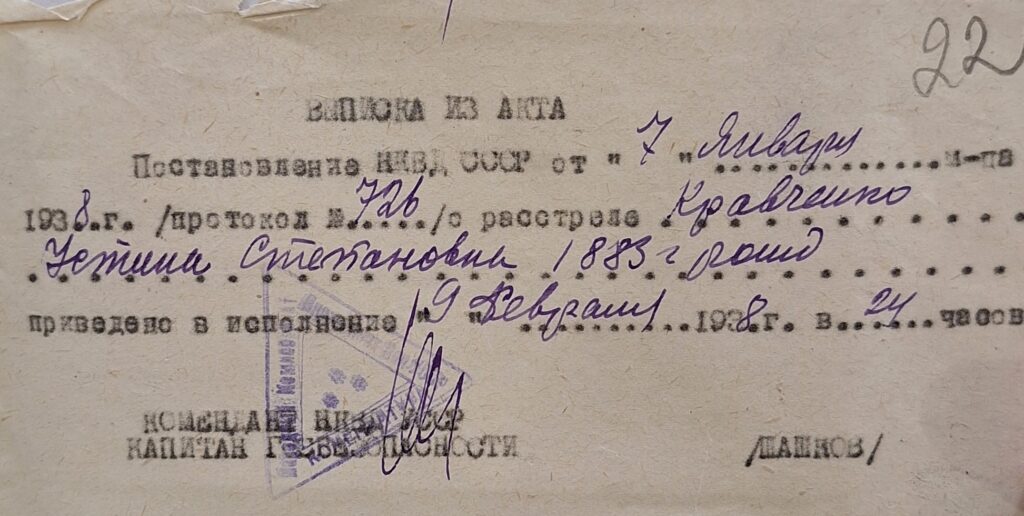 22
ВЫПИСКА ИЗ АКТА
Постановление НКВД СССР от " 7 " Января м-ца
1938.г. /протокол №.726../о расстреле Кравченко
Устина Степановна 1883 г рожд
приведено в исполнение " 9 " Февраля 1938.г. в..24...часов
КОМЕНДАНТ НКВД УССР
КАПИТАН ГОСБЕЗОПАСНОСТИ /ШАШКОВ/